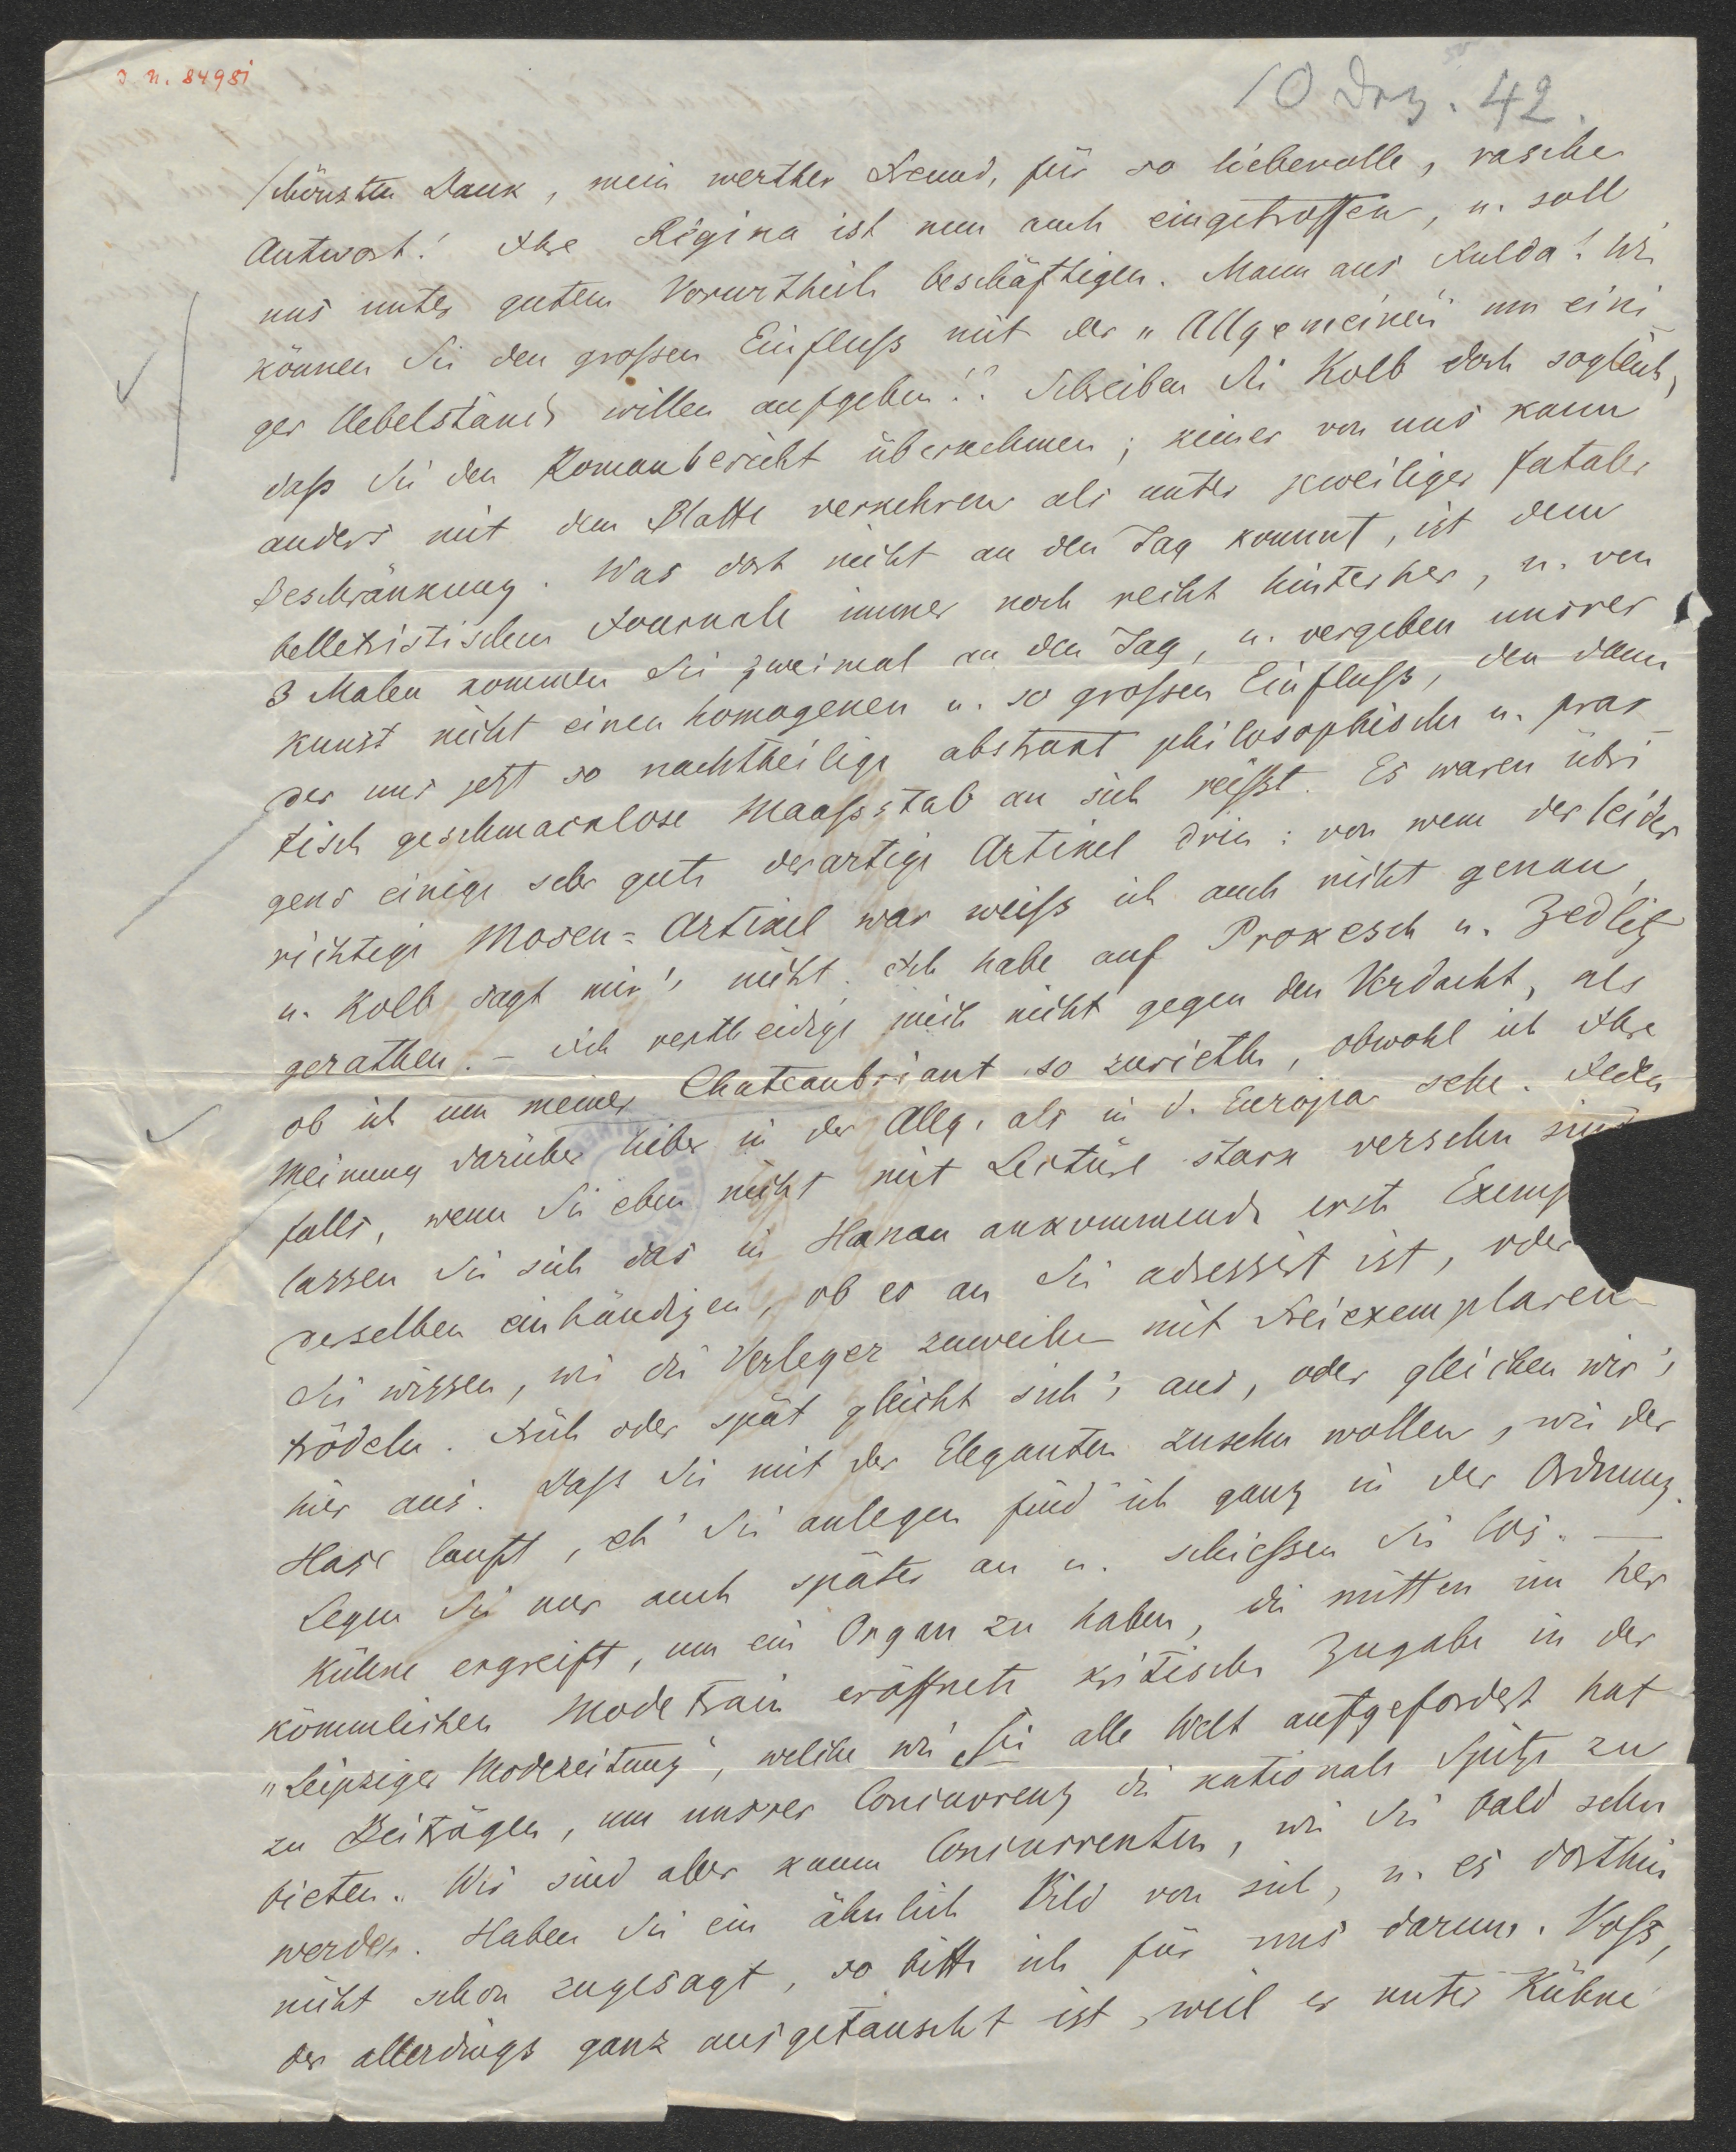 I. N. 84981
10 Dez. 42.
Schönsten Dank, mein werther Freund, für so liebevolle, rasche
Antwort! Ihre Regina ist nun auch eingetroffen, u. soll
uns unter gutem Vorurtheile beschäftigen. Mann aus Fulda! Wie
können Sie den großen Einfluß mit der „Allgemeinen“ um eini
ger Uebelstände willen aufgeben!? Schreiben Sie Kolb doch sogleich,
daß Sie den Romanbericht übernehmen; keiner von uns kann
anders mit dem Blatte verkehren als unter zeweiliger fataler
Beschränkung. Was dort nicht an den Tag kommt, ist dem
belletristischen Journale immer noch recht hinterher, u. von
3 Malen kommen Sie zweimal an den Tag, u. vergeben unsrer
Kunst nicht einen homogenen u. so großen Einfluß, den dann
der uns jetzt so nachtheilige abstrakt philosophische u. prak
tisch geschmacklose Maaßstab an sich reißt. Es waren übri
gens einige sehr gute derartige Artikel drin: von wem der leider
richtige Mosen-Artikel war weiß ich auch nicht genau,
u. Kolb sagt mir's nicht. Ich habe auf Prokesch u. Zedlitz
gerathen. – Ich vertheidige mich nicht gegen den Verdacht, als
ob ich um meiner Chateaubriant so zuriethe, obwohl ich Ihre
Meinung darüber lieber in der Allg. als in d. Europa sehe. Jeden
falls, wenn Sie eben nicht mit Lectüre stark versehn sind
lassen Sie sich das in Hanau ankommende erste Exemp
derselben einhändigen, ob es an Sie adressirt ist, oder
Sie wissen, wie die Verleger zuweilen mit Freiexemplaren
trödeln. Früh oder spät gleicht sich's aus, oder gleichen wir's
hier aus. Daß Sie mit der Eleganten zusehn wollen, wie der
Hase lauft, eh' Sie anlegen find ich ganz in der Ordnung.
Legen Sie nur auch später an u. schießen Sie los. —
Kühne ergreift, um ein Organ zu haben, die mitten im her
kömmlichen Modetrain eröffnete kritische Zugabe in der
„Leipziger Modezeitung“, welche wie Sie alle Welt aufgefordert hat
zu Beiträgen, um unsrer Concurrenz die nationale Spitze zu
bieten. Wir sind aber kaum Concurrenten, wie Sie bald sehn
werden. Haben Sie ein ähnlich Bild von sich, u. es dorthin
nicht schon zugesagt, so bitte ich für uns darum. Voß,
der allerdings ganz ausgetauscht ist, weil er unter Kühne